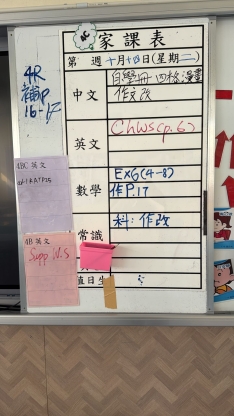 家課表
第 週 十月十四日(星期二)
4R
補P
16-17
中文
自學冊 四格漫畫
作文改
英文
Ch W5 (p.6)
數學
Ex6(4-8)
作P.17
常識
科:作改
4BC 英文
4B 英文
Supp W.S
值日生